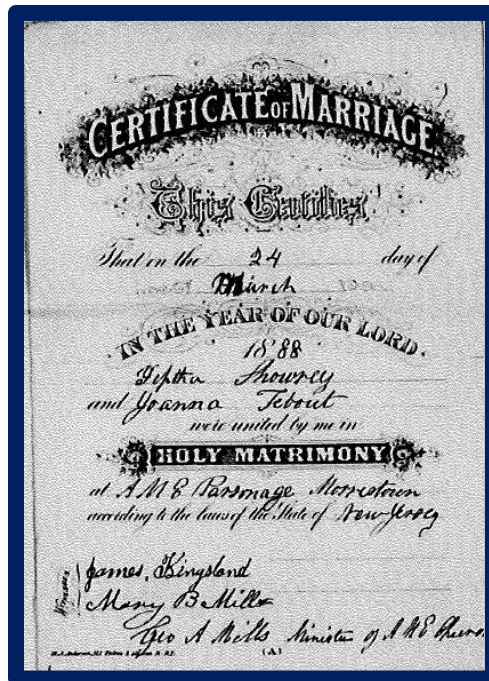 CERTIFICATE OF MARRIAGE.
This Certifies
That on the 24 day of
March
IN THE YEAR OF OUR LORD.
1888
Jeptha Showrey
and Joanna Tebout
were united by me in
HOLY MATRIMONY
at A M E Parsonage Morristown
according to the laws of the State of New Jersey
Witnesses
James, Kingsland
Mary B Mills
Geo A Mills Minister of A M E Church
(A)